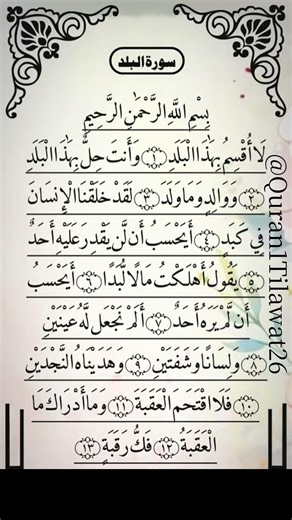 سورة البلد
بِسْمِ اللَّهِ الرَّحْمَٰنِ الرَّحِيمِ
لَا أُقْسِمُ بِهَٰذَا الْبَلَدِ ﴿١﴾ وَأَنتَ حِلٌّ بِهَٰذَا الْبَلَدِ
﴿٢﴾ وَوَالِدٍ وَمَا وَلَدَ ﴿٣﴾ لَقَدْ خَلَقْنَا الْإِنسَانَ
فِي كَبَدٍ ﴿٤﴾ أَيَحْسَبُ أَن لَّن يَقْدِرَ عَلَيْهِ أَحَدٌ
﴿٥﴾ يَقُولُ أَهْلَكْتُ مَالًا لُّبَدًا ﴿٦﴾ أَيَحْسَبُ
أَن لَّمْ يَرَهُ أَحَدٌ ﴿٧﴾ أَلَمْ نَجْعَل لَّهُ عَيْنَيْنِ
﴿٨﴾ وَلِسَانًا وَشَفَتَيْنِ ﴿٩﴾ وَهَدَيْنَاهُ النَّجْدَيْنِ
﴿١٠﴾ فَلَا اقْتَحَمَ الْعَقَبَةَ ﴿١١﴾ وَمَا أَدْرَاكَ مَا
الْعَقَبَةُ ﴿١٢﴾ فَكُّ رَقَبَةٍ ﴿١٣﴾
@Quran1Tilawat26